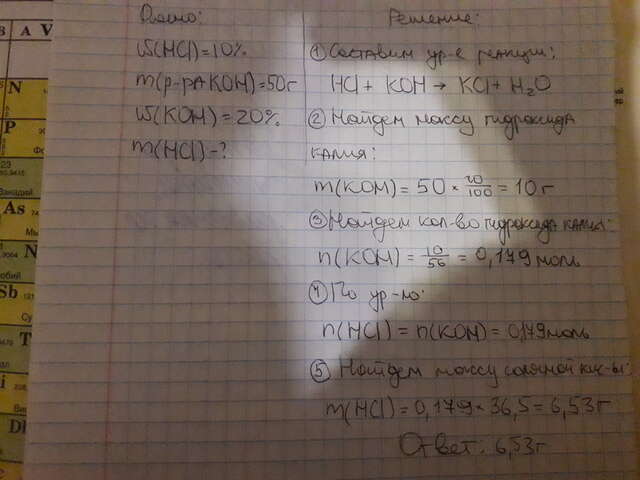 Дано:
W(HCl)=10%
m(р-ра KOH)=50г
W(KOH)=20%
m(HCl)-?
Решение:
① Составим ур-е реакции:
HCl + KOH → KCl + H₂O
② Найдем массу гидроксида
калия:
m(KOH) = 50 × 20/100 = 10 г
③ Найдем кол-во гидроксида калия:
n(KOH) = 10/56 = 0,179 моль
④ По ур-ю:
n(HCl) = n(KOH) = 0,179 моль
⑤ Найдем массу соляной кис-ты:
m(HCl) = 0,179 × 36,5 = 6,53 г
Ответ: 6,53г
A V
N
P
Фо
23
Ванадий
As
74
Мы
N
Sb
Су
T
Ви